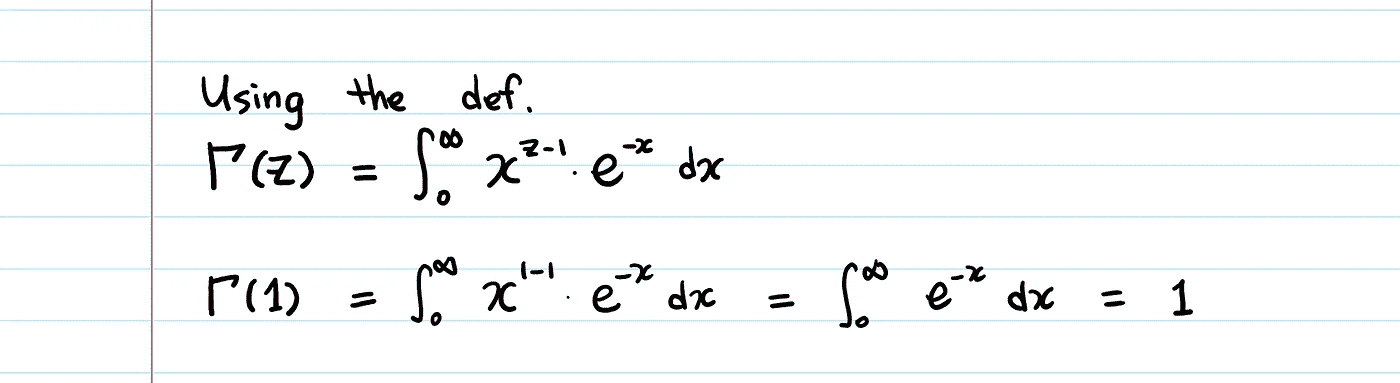 Using the def.
Γ(z) = ∫₀^∞ x^(z-1) · e^(-x) dx
Γ(1) = ∫₀^∞ x^(1-1) · e^(-x) dx = ∫₀^∞ e^(-x) dx = 1